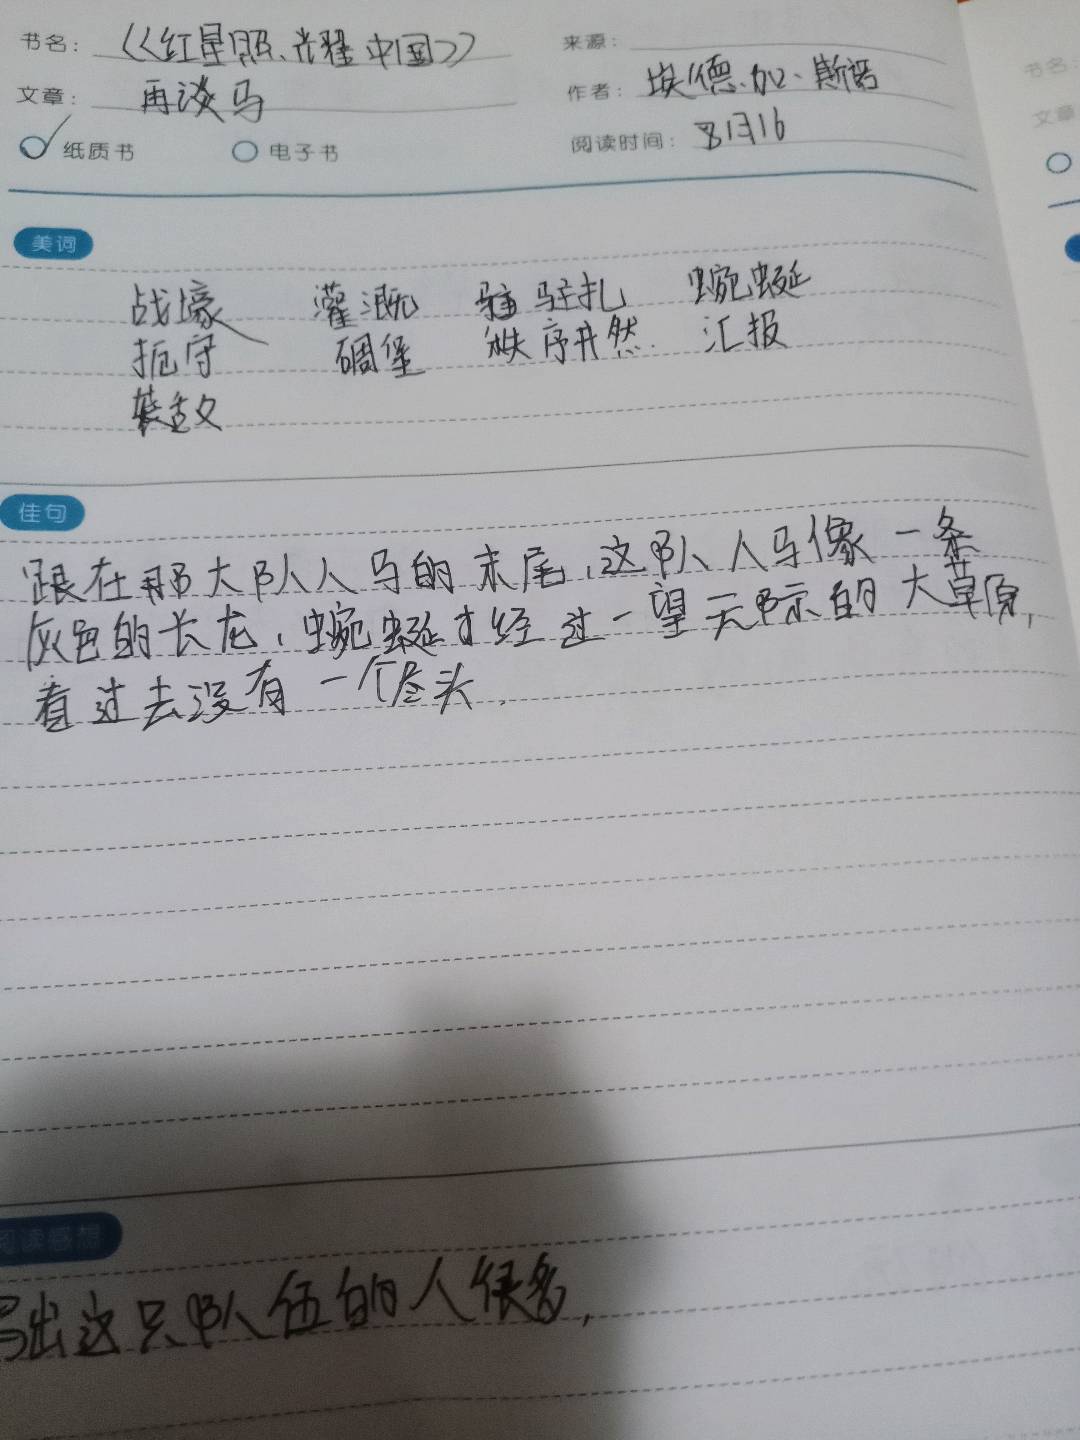 书名： 《红星照耀中国》 来源：
文章： 再谈马 作者： 埃德.加、斯诺
纸质书 电子书 阅读时间： 8月16
美词
战壕 灌溉 驻扎 蜿蜒
扼守 碉堡 秩序井然 汇报
佳句
跟在那大队人马的末尾,这队人马像一条
灰色的长龙,蜿蜒才经过一望无际的大草原,
看过去没有一个尽头.
阅读感想
写出这只队伍的人很多,
书名：
文章